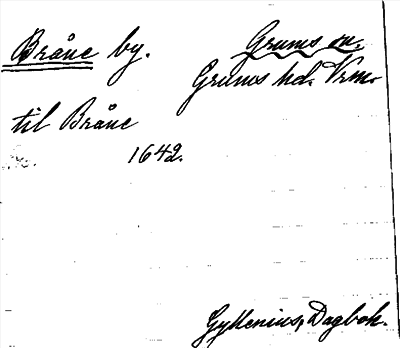 Bråne by. Grums sn.
Grums hd. Vrml.
til Bråne
1642.
Gyllenius, Dagbok.